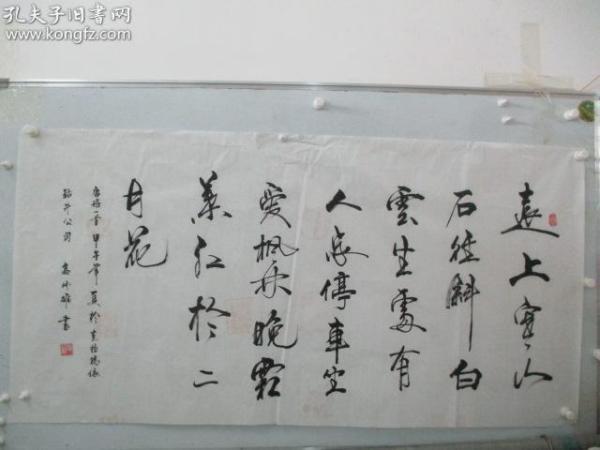 孔夫子旧书网
www.kongfz.com
遠上寒山
石徑斜白
雲生處有
人家停車坐
愛楓林晚霜
葉紅於二
月花
唐詩一首 甲午年夏於
公司 書